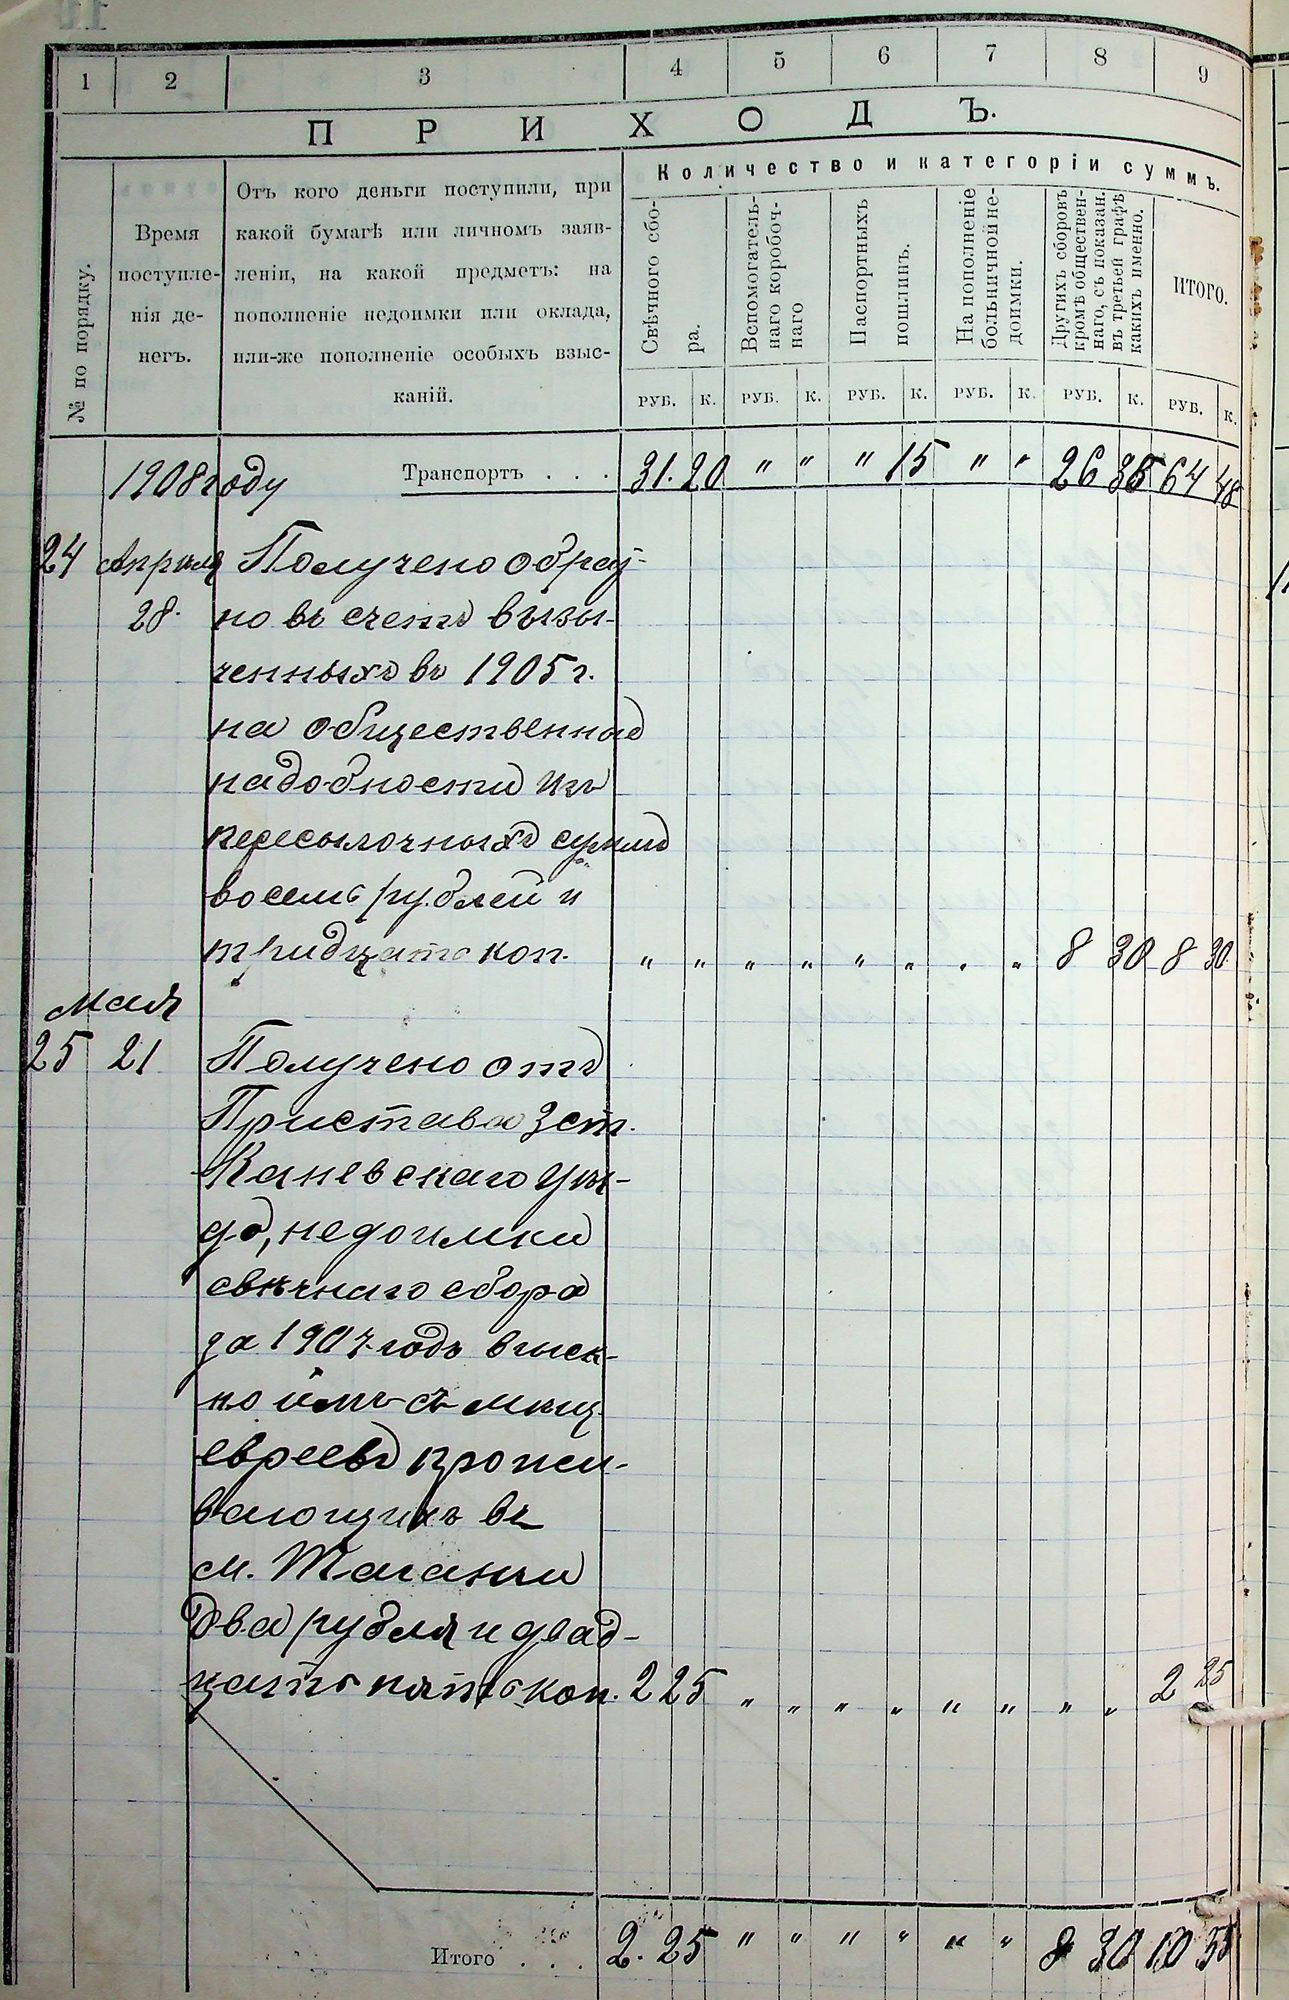 11
1 2 3 4 5 6 7 8 9
ПРИХОДЪ.
№ по порядку.
Время
поступле-
нія де-
негъ.
Отъ кого деньги поступили, при
какой бумагѣ или личномъ заяв-
леніи, на какой предметъ: на
пополненіе недоимки или оклада,
или-же пополненіе особыхъ взыс-
каній.
Количество и категоріи суммъ.
Свѣчного сбо-
ра.
Вспомогатель-
наго коробоч-
наго
Паспортныхъ
пошлинъ.
На пополненіе
больничной не-
доимки.
Другихъ сборовъ
кромѣ обществен-
наго, съ показан.
въ третьей графѣ
какихъ именно.
ИТОГО.
РУБ. К. РУБ. К. РУБ. К. РУБ. К. РУБ. К. РУБ. К.
1908 году Транспортъ . . . 31. 20 " " " 15 " " 26 64 48
24 Апрѣля Получено обрат-
28. но въ счетъ
ченныхъ въ 1905 г.
на общественныя
надобности изъ
пересылочныхъ суммъ
восемь рублей и
тридцать коп. " " " " " " " " 8 30 8 30
Мая
25 21 Получено отъ
Пристава 3 ст.
Каневскаго Уѣз-
да, недоимки
свѣчнаго сбора
за 1907 годъ взыск-
но имъ съ мѣщ.
евреевъ прожи-
вающихъ въ
м. Таганчи
Два рубля и двад-
цать пять коп. 2 25 " " " " " " " " 2 25
Итого . . . 2. 25 " " " " " " 8 30 10 55